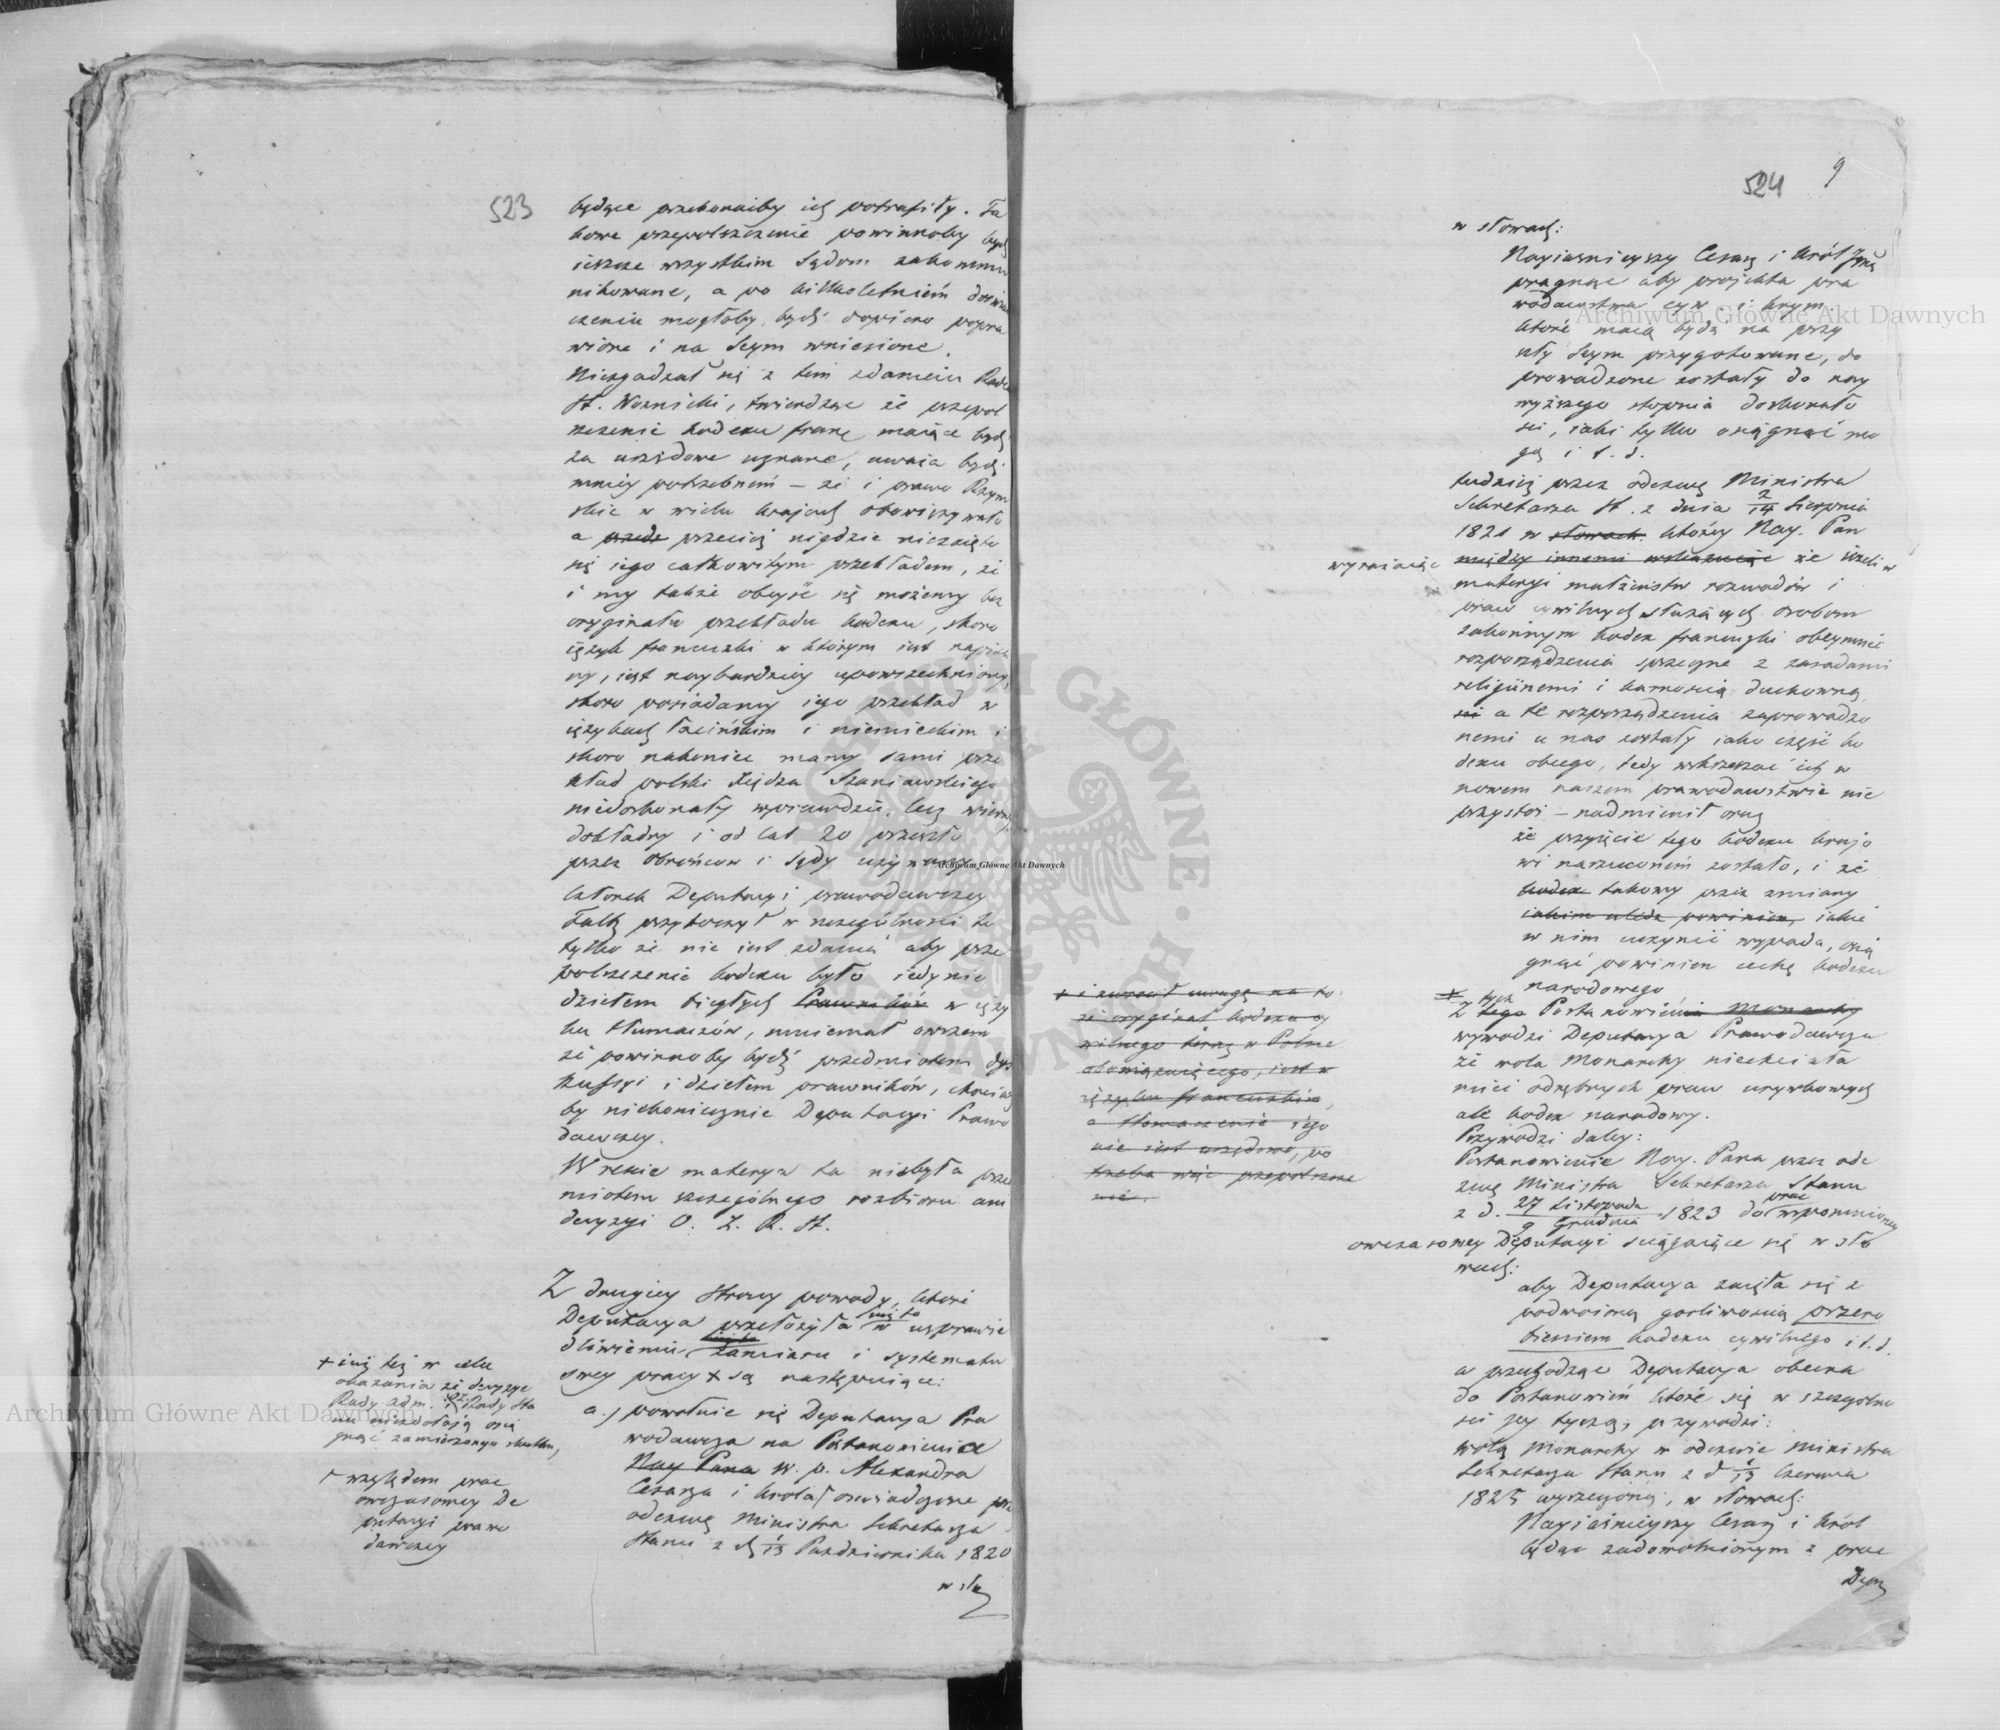 523
będące przekonaiby ich potrafiły. Ta
kowe przepolszczenie powinnoby bydź
ieszcze wszystkim Sądom zakommu
nikowane, a po kilkoletniém doświad
czeniu mogłoby bydź dopiero popra
wione i na Seym wniesione.
Niezgadzał się z tem zdaniem Radca
St. Woznicki, twierdząc że przepol
szczenie kodexu franc maiące bydź
za urzędowe uznane, uważa bydź
mniey potrzebném – że i prawo Rzym
skie w wielu kraiach obowiązywało
a przecie przecież nigdzie niezaięto
się iego całkowitym przekładem, że
i my także obeyść się możemy bez
oryginału przekładu kodexu, skoro
ięzyk francuzki w którym iest napisa
ny, iest naybardziey upowszechniony,
skoro posiadamy iego przekład w
ięzykach łacińskim i niemieckim i
skoro nakoniec mamy sami prze
kład polski Xiędza Szaniawskiego
niedoskonały wprawdzie, lecz wierny
dokładny i od lat 20 przeszło
przez Obrońców i Sądy używany
Członek Deputacyi prawodawczey
Faltz przytoczył w szczególności to
tylko że nie iest zdania aby prze
polszczenie kodexu było iedynie
dziełem biegłych Prawników w ięzy
ku tłumaczów, mniemał owszem
że powinnoby bydź przedmiotem dys
kussyi i dziełem prawników, chociaż
by niekoniecznie Deputacyi Prawo
dawczey.
W resie materya ta niebyła przed
miotem szczególnego rozbioru ani
decyzyi O. Z. R. St.
Z drugiey strony powody, które
Deputacya przełożyła w usprawie
dliwieniu zamiaru i systematu
swey pracy + są następuiące:
a.) powołuie się Deputacya Pra
wodawcza na Postanowienia
Nay Pana W. p. Alexandra
Cesarza i Króla oświadczone przez
odezwę Ministra Sekretarza
Stanu z d. 1/13 Października 1820
w sło
+ iuż też w celu
okazania że decyzye
Rady Adm. i Rady Sta
nu niezdołają osią
gnąć zamierzonego skutku,
względem prac
owczasowey De
putacyi prawo
dawczey
524
9
w słowach:
Nayiaśnieyszy Cesarz i Król Jmć
pragnąc aby projekta pra
wodawstwa cyw. i krym.
które maią bydź na przy
szły Seym przygotowane, do
prowadzone zostały do nay
wyższego stopnia doskonało
ści, iaki tylko osiągnąć mo
gą i t. d.
tudzież przez odezwę Ministra
Sekretarza St. z dnia 2/14 Sierpnia
1821 w słowach którey Nay. Pan
wyraziaiąc
między innemi wskazuiąc że ieżeli w
materyi małżeństw rozwodów i
praw cywilnych służących osobom
zakonnym kodex francuzki obeymuie
rozporządzenia sprzeczne z zasadami
religiinemi i karnością duchowną
a te rozporządzenia zaprowadzo
nemi u nas zostały iako część ko
dexu obcego, tedy wskrzeszać ich w
nowem naszem prawodawstwie nie
przystoi – nadmienił oraz
że przyięcie tego kodexu krajo
wi narzuconém zostało, i że
kodex takowy przez zmiany
iakim uledz powinien, iakie
w nim uczynić wypada, osią
gnąć powinien cechę kodexu
narodowego
+ i zwrócił uwagę na to
że oryginał kodexu cy
wilnego teraz w Polsce
obowiązuiącego, iest w
ięzyku francuzkim,
a tłomaczenie iego
nie iest urzędowe, po
trzeba więc przepolszcze
nie.
tych
Z tego Postanowienia Monarchy
wywodzi Deputacya Prawodawcza
że wola Monarchy niechciała
mieć odrębnych praw urywkowych
ale kodex narodowy.
Przywodzi daley:
Postanowienie Nay. Pana przez ode
zwę Ministra Sekretarza Stanu
z d. 27 Listopada / 9 Grudnia 1823 do prac wspomnioney
owczasowey Deputacyi ściągaiące się w sło
wach:
aby Deputacya zaięła się z
podwoioną gorliwością przero
bieniem kodexu cywilnego i t. d.
a przechodząc Deputacya obecna
do Postanowień które się w szczególno
ści jey tyczą, przywodzi:
wolą Monarchy w odezwie Ministra
Sekretarza Stanu z d 1/13 Czerwca
1825 wyrzeczoną, w słowach:
Nayiaśnieyszy Cesarz i Król
będąc zadowolnionym z prac
Depu
Archiwum Główne Akt Dawnych
Archiwum Główne Akt Dawnych
Archiwum Główne Akt Dawnych